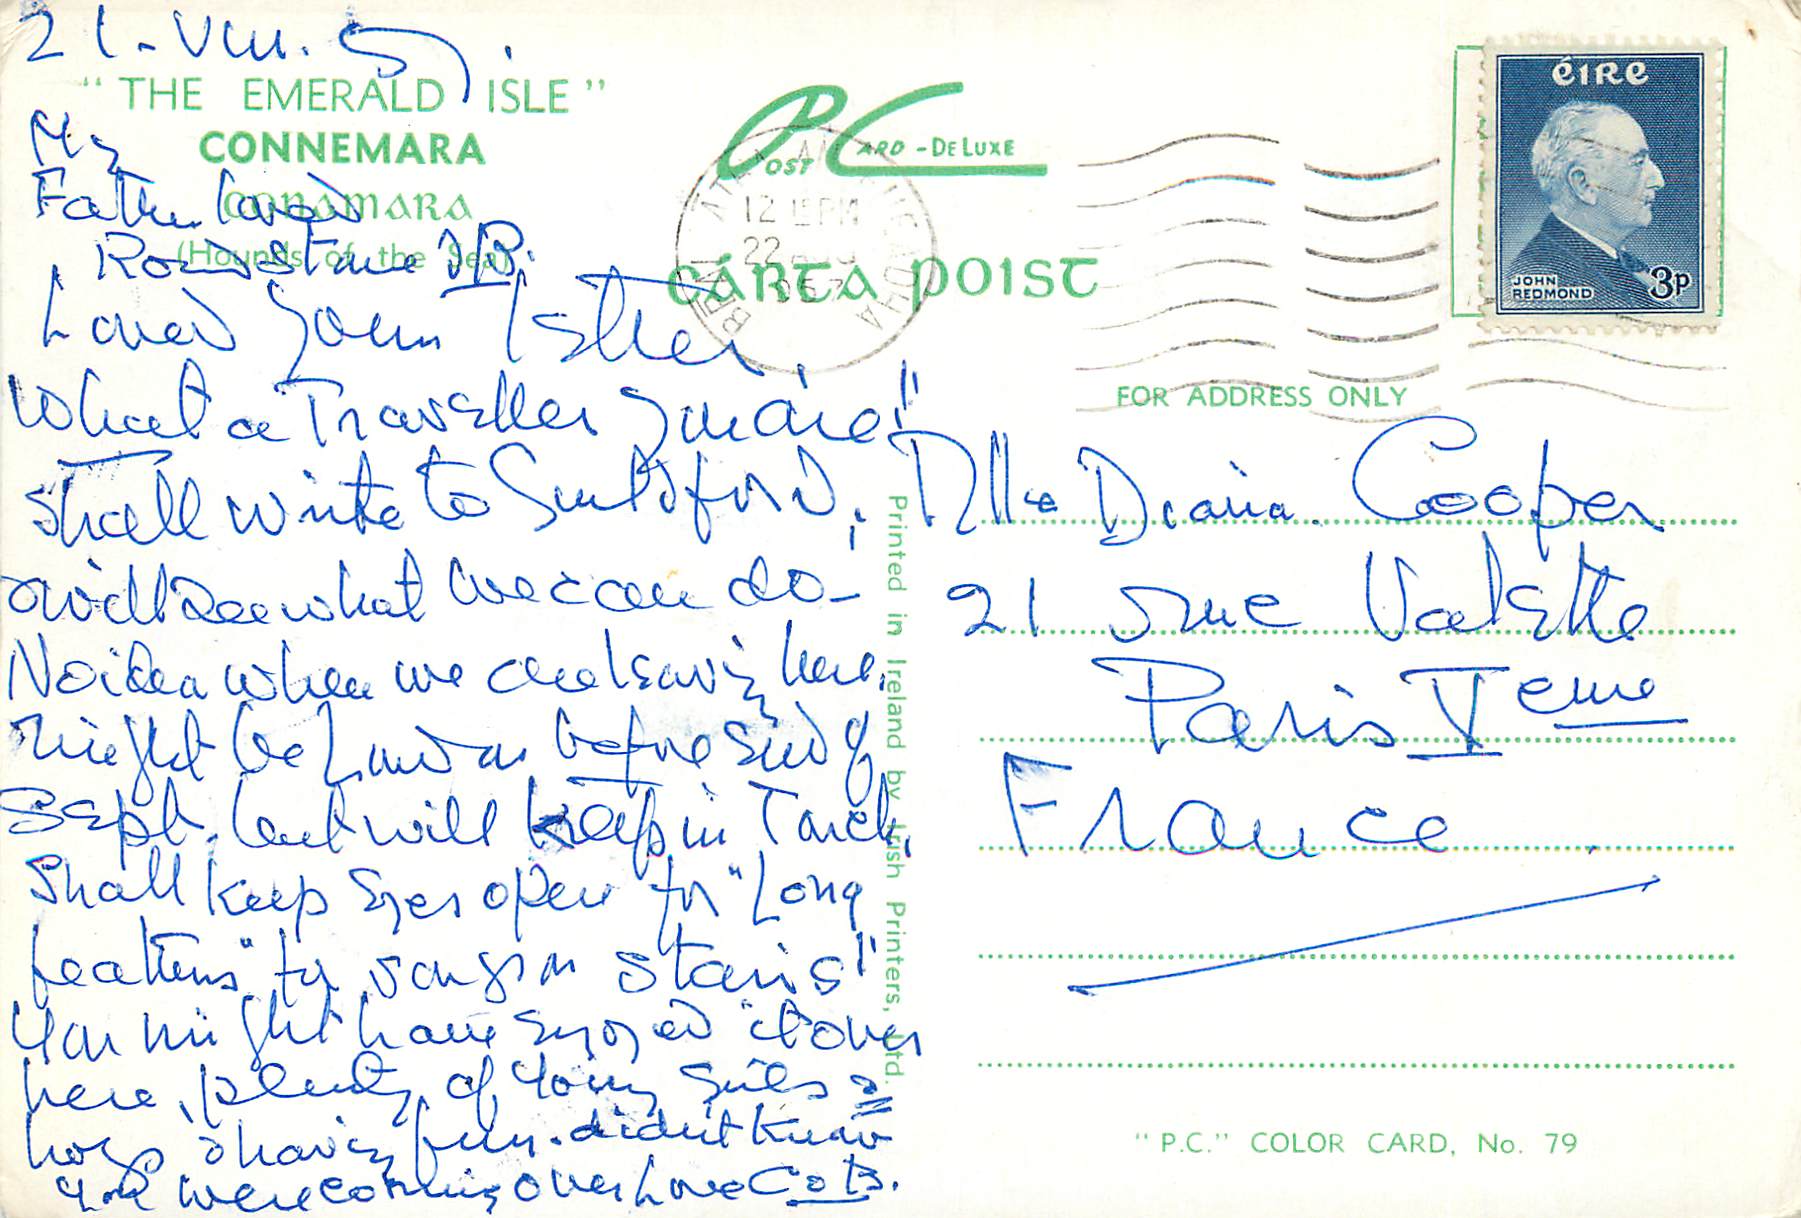 21-VIII.57.
"THE EMERALD ISLE"
CONNEMARA
CONAMARA
(Hounds of the Sea)
My
Father loved
Roundstone
Loved your letter,
What a Traveller you are!!
Shall write to Guildford,
& will see what we can do-
No idea when we are leaving here.
Might be London before end of
Sept. but will keep in Touch.
Shall keep eyes open for "Long
feathers" for
You might have enjoyed it over
here, plenty of young girls &
boys & having fun. didn't know
you were coming over Love
POST CARD - DE LUXE
12 15PM
22
CÁRTA POIST
ÉIRE
JOHN
REDMOND
3p
FOR ADDRESS ONLY
Mlle Diana Cooper
21 rue Valette
Paris Veme
France.
Printed in Ireland by Irish Printers, Ltd.
"P.C." COLOR CARD, No. 79